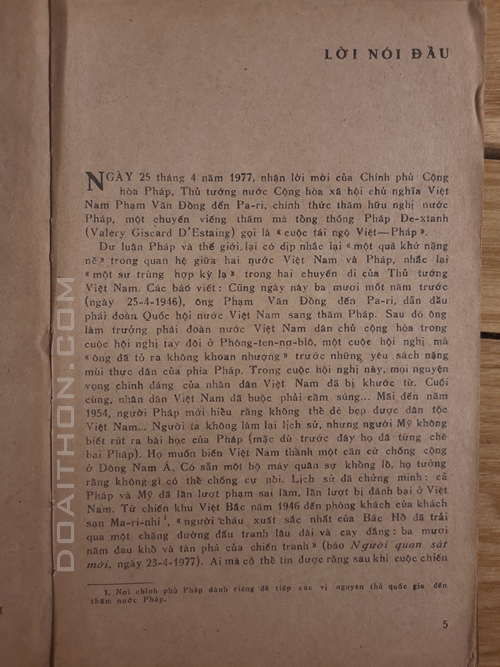 LỜI NÓI ĐẦU
NGÀY 25 tháng 4 năm 1977, nhận lời mời của Chính phủ Cộng
hòa Pháp, Thủ tướng nước Cộng hòa xã hội chủ nghĩa Việt
Nam Phạm Văn Đồng đến Pa-ri, chính thức thăm hữu nghị nước
Pháp, một chuyến viếng thăm mà tổng thống Pháp De-xtanh
(Valery Giscard D'Estaing) gọi là « cuộc tái ngộ Việt—Pháp ».
Dư luận Pháp và thế giới lại có dịp nhắc lại « một quá khứ nặng
nề » trong quan hệ giữa hai nước Việt Nam và Pháp, nhắc lại
« một sự trùng hợp kỳ lạ » trong hai chuyến đi của Thủ tướng
Việt Nam. Các báo viết : Cũng ngày này ba mươi mốt năm trước
(ngày 25-4-1946), ông Phạm Văn Đồng đến Pa-ri, dẫn đầu
phái đoàn Quốc hội nước Việt Nam sang thăm Pháp. Sau đó ông
làm trưởng phái đoàn nước Việt Nam dân chủ cộng hòa trong
cuộc hội nghị tay đôi ở Phông-ten-nơ-blô, một cuộc hội nghị mà
« ông đã tỏ ra không khoan nhượng » trước những yêu sách nặng
mùi thực dân của phía Pháp. Trong cuộc hội nghị này, mọi nguyện
vọng chính đáng của nhân dân Việt Nam đã bị khước từ. Cuối
cùng, nhân dân Việt Nam đã buộc phải cầm súng... Mãi đến năm
1954, người Pháp mới hiểu rằng không thể đè bẹp được dân tộc
Việt Nam... Người ta không làm lại lịch sử, nhưng người Mỹ không
biết rút ra bài học của Pháp (mặc dù trước đây họ đã từng chê
bai Pháp). Họ muốn biến Việt Nam thành một căn cứ chống cộng
ở Đông Nam Á. Có sẵn một bộ máy quân sự khổng lồ, họ tưởng
rằng không gì có thể chống cự nổi. Lịch sử đã chứng minh : cả
Pháp và Mỹ đã lần lượt phạm sai lầm, lần lượt bị đánh bại ở Việt
Nam. Từ chiến khu Việt Bắc năm 1946 đến phòng khách của khách
sạn Ma-ri-nhi¹, « người cháu xuất sắc nhất của Bác Hồ đã trải
qua một chặng đường đấu tranh lâu dài và cay đắng : ba mươi
năm đau khổ và tàn phá của chiến tranh » (báo Người quan sát
mới, ngày 23-4-1977). Ai mà có thể tin được rằng sau khi cuộc chiến
1. Nơi chính phủ Pháp dành riêng để tiếp các vị nguyên thủ quốc gia đến
thăm nước Pháp.
5
DOAITHON.COM